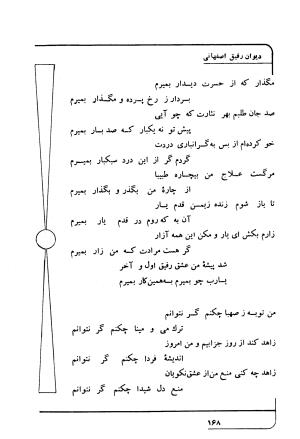 دیوان رفیق اصفهانی
مگذار که از حسرت دیدار بمیرم
بردار ز رخ پرده و مگذار بمیرم
صد جان طلبم بهر نثارت که چو آیی
پیش تو نه یکبار که صد بار بمیرم
خو کرده‌ام از بس به گرانباری دردت
گردم گر از این درد سبکبار بمیرم
مرگست علاج من بیچاره طبیبا
از چارهٔ من بگذر و بگذار بمیرم
تا باز شوم زنده زیمن قدم یار
آن به که روم در قدم یار بمیرم
زارم بکش ای یار و مکن این همه آزار
گر هست مرادت که من زار بمیرم
شد پیشهٔ من عشق رفیق اول و آخر
یارب چو بمیرم به‌همین‌کار بمیرم
من توبه ز صهبا چکنم گر نتوانم
ترک می و مینا چکنم گر نتوانم
زاهد کند از روز جزابیم و من امروز
اندیشهٔ فردا چکنم گر نتوانم
زاهد چه کنی منع من‌از عشق‌نکویان
منع دل شیدا چکنم گر نتوانم
۱۶۸